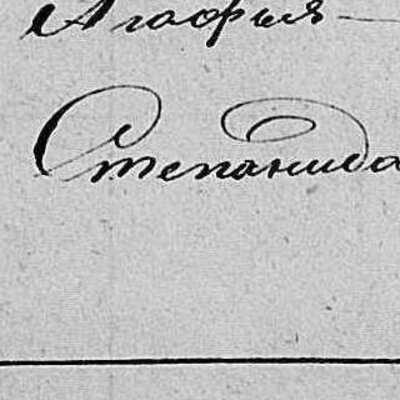 Агафья
Степанида